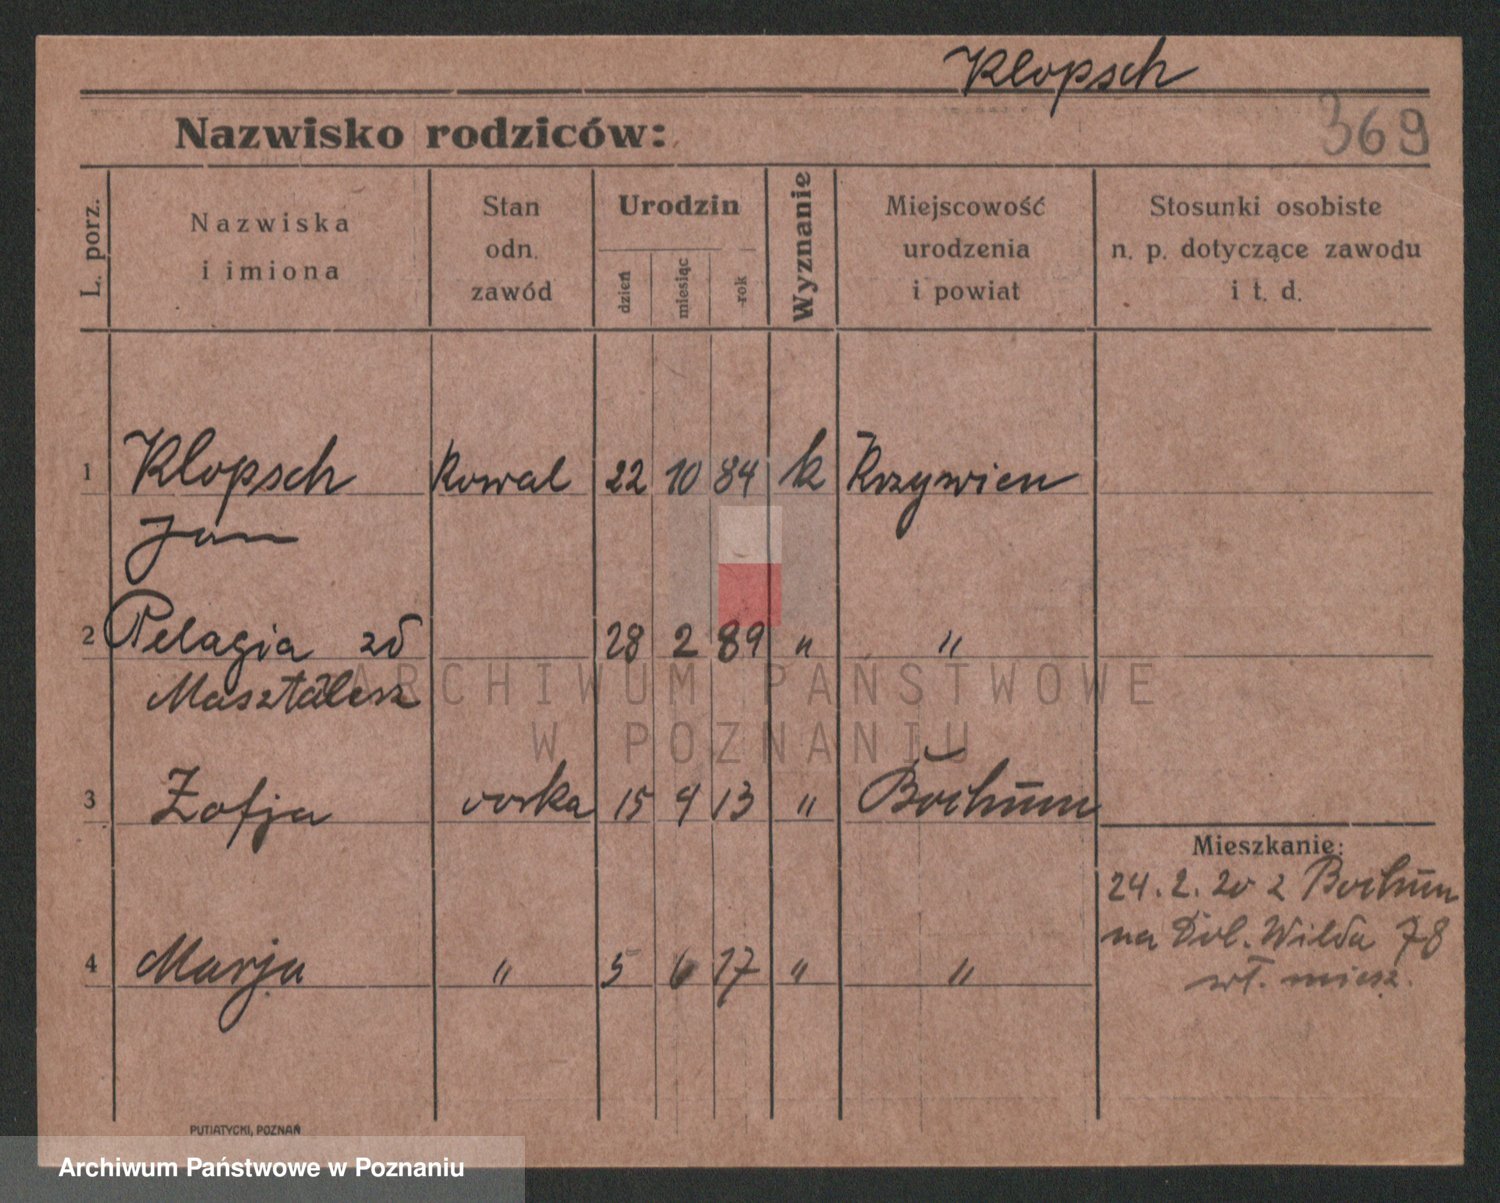 Klopsch
369
Nazwisko rodziców:
L. porz.
Nazwiska
i imiona
Stan
odn.
zawód
Urodzin
dzień
miesiąc
rok
Wyznanie
Miejscowość
urodzenia
i powiat
Stosunki osobiste
n. p. dotyczące zawodu
i t. d.
1 Klopsch Kowal 22 10 84 k Krzywien
Jan
2 Pelagia zd 28 2 89 " "
Masztalesz
3 Zofja corka 15 4 13 " Bochum
4 Marja " 5 6 17 " "
Mieszkanie:
24. 2. 20 z Bochum
na Dol. Wilda 78
wł. miesz.
PUTIATYCKI, POZNAŃ
ARCHIWUM PAŃSTWOWE
W POZNANIU
Archiwum Państwowe w Poznaniu